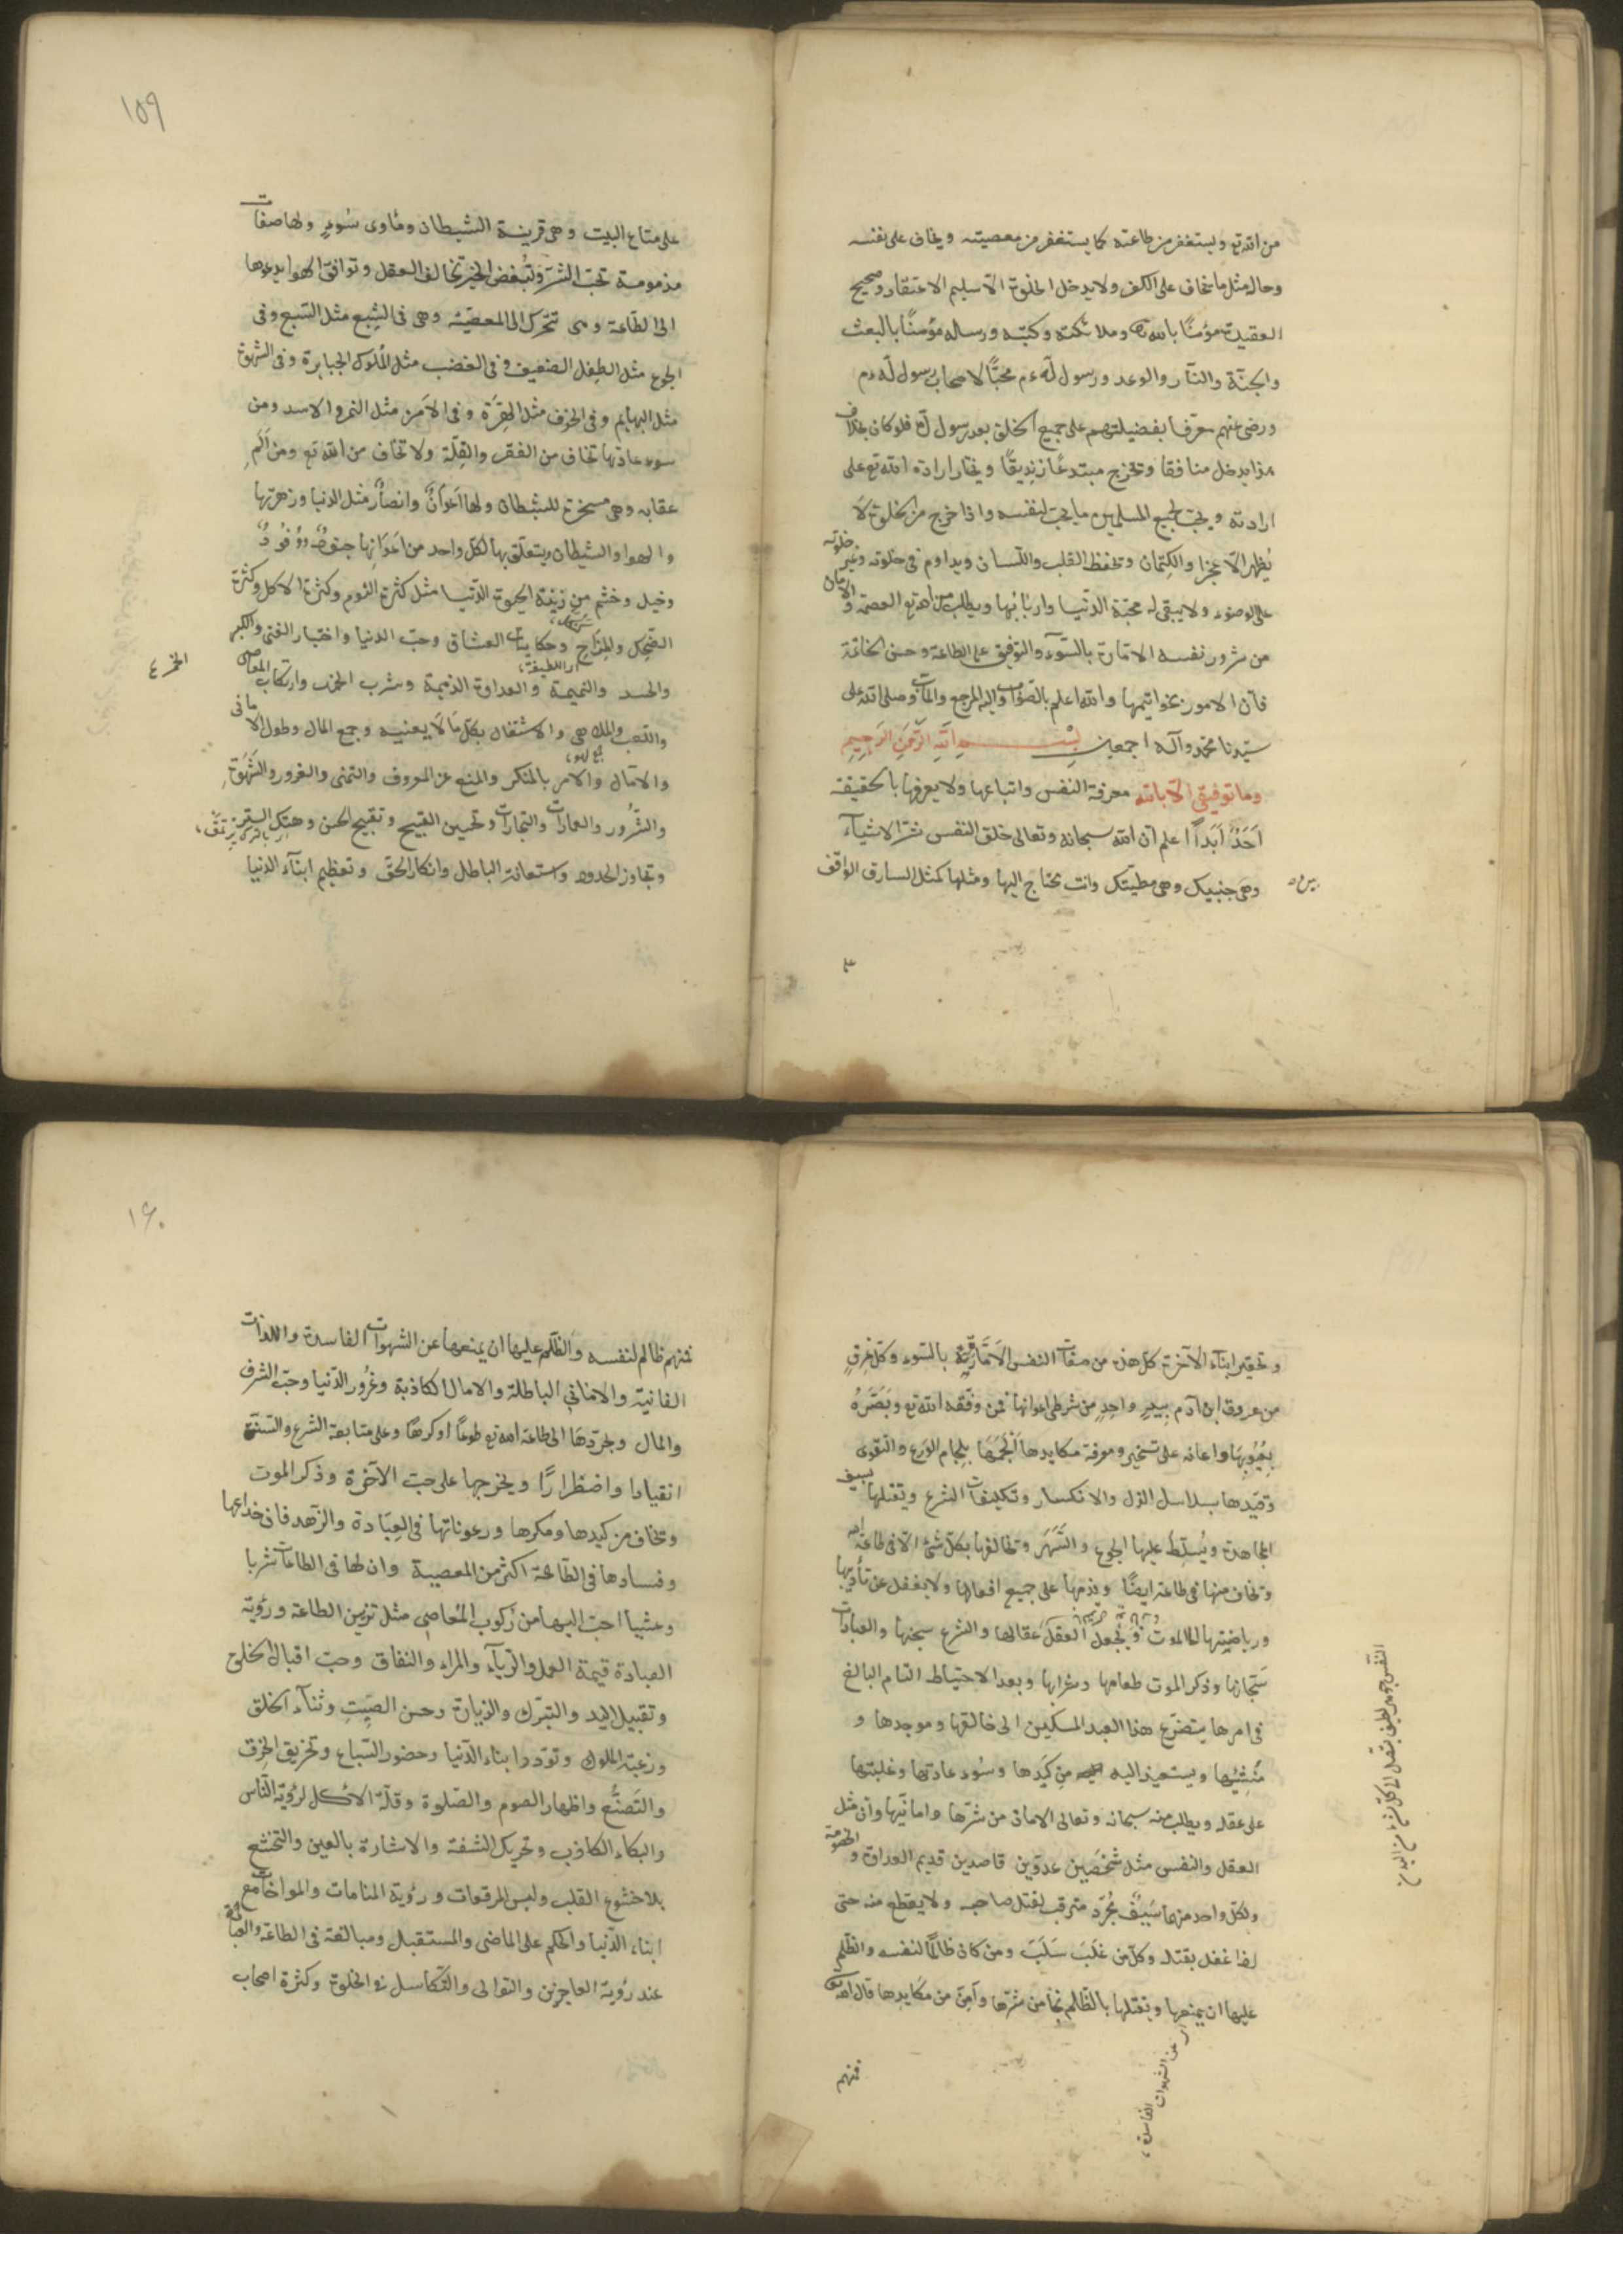 من الله تع ويستغفر من طاعته كما يستغفر من معصيته ويخاف على نفسه
وحاله مثل ما يخاف على الكفر ولا يدخل الخلوة الا سليم الاعتقاد وصحيح
العقيدة مؤمنًا بالله تع وملائكته وكتبه ورسله مؤمنًا بالبعث
والجنّة والنّار والوعد ورسول لله ءم محبًّا لاصحاب رسول لله ءم
ورضى عنهم معرفا بفضيلتهم على جميع الخلق بعد رسول لله فلو كان بخلاف
هذا يدخل منافقا وتخرج مبتدعًا زنديقًا ويختار ارادة الله تع على
ارادته ويحب لجميع المسلمين ما يحب لنفسه واذا خرج من الخلوة لا
يُظهر الا عجزا والكتمان وتحفظ القلب واللّسان ويداوم فى خلوته وغير خلوته
على الوضوء ولا يبقى له محبّة الدّنيا واربابها ويطلب من الله تع العصمة والامان
من شرور نفسه الامّارة بالسّوء والتوفيق على الطاعة وحسن الخاتمة
فانّ الامور بخواتيمها والله اعلم بالصّواب واليه المرجع والمآب وصلى الله على
سيّدنا محمّد وآله اجمعين بِسْمِ اللهِ الرَّحْمنِ الرَّحِيمِ
وما توفيقى الا بالله معرفة النفس واتباعها ولا يعرفها بالحقيقة
اَحَدٌ اَبَداً اعلم ان الله سبحانه وتعالى خلق النفس شرّ الاشياء
وهى جنبيك وهى مطيّتك وانت تحتاج اليها ومثلها كمثل السارق الواقف
على
١٥٩
على متاع البيت وهى قرينة الشيطان ومأوى سُوءٍ ولها صفات
مذمومة تحبّ الشرّ وتُبغض الخير تخالف العقل وتوافق الهوا يدعوها
الى الطّاعة وهى تتحرّك الى المعصيّة وهى فى الشِبع مثل السّبع وفى
الجوع مثل الطِفل الضعيف وفى الغضب مثل الملوك الجبابرة وفى الشهوة
مثل البهايم وفى الخوف مثل الهِرّة وفى الامن مثل النمر والاسد ومن
سوء عادتها تخاف من الفقر والقلّة ولا تخاف من الله تع ومن اَلَمِ
عقابه وهى مسخرة للشيطان ولها اَعوانٌ وانصارٌ مثل الدنيا وزهرتها
والهوا والشيطان ويتعلّق بها لكل واحد من اَعوانها جنودٌ ووُفُودٌ
وخيل وخشم من زينة الحيوة الدّنيا مثل كثرة النّوم وكثرة الاكل وكثرة
الضّحك والمِزاح وحكايات العشاق وحبّ الدنيا واختيار الغنى والكبر
والحسد والنميمة والعداوة الذميمة وشرب الخمر وارتكاب المعاصى
الخمر ٤
والاشتغال بكلّ ما لا يعنيه وجمع المال وطول الامانى
والآمال والامر بالمنكر والمنع عن المعروف والتمنى والغرور والشّهوة
والشّرور والعمارات والتجارات وتحسين القبيح وتقبيح الحسن وهتك السِتر
وتجاوز الحدود واستعانة الباطل وانكار الحقّ وتعظيم ابناء الدنيا
وتحقير ابناء الآخرة كلّ هذه من صفات النفس الامّارة بالسّوء وكلّ عِرقٍ
من عروق ابن آدم بيدِ واحدٍ من شرطى اعوانها فمن وفّقه الله تع وبَصَّرَهُ
بعُيُوبها واعانه على تسخير ومعرفة مكايدها اَلْجَمَها بلجام الوَرع والتقوى
وقيّدها بسلاسل الذل والانكسار وتكليفات الشرع ويقتلها بسيف
المجاهدة ويُسلّط عليها الجوع والسَّهَر وتخالفها بكلّ شئ الا فى طاعة الله
وتخاف منها فى طاعة ايضًا ويذمّها على جميع افعالها ولا يغفل عن تأديبها
ورياضتها الى الموت ويجعل العقل عقالها والشرع سجنها والعبادات
سَجّانها وذكر الموت طعامها وشرابها وبعد الاحتياط التام البالغ
فى امرها يتضرّع هذا العبد المسكين الى خالقها وموجدها و
مُنشئها ويستعيذ اليه من كَيدها وسُوء عادتها وغلبتها
على عقله ويطلب منه سبحانه وتعالى الامان من شرّها وامانيّها وان مثل
العقل والنفس مثل شخصين عدوّين قاصدين قديم العداوة والخصومة
ولكلّ واحد منهما سَيفٌ مجرّد مترقب لقتل صاحبه ولا يقطع منه حتى
اذا غفل يقتله وكلّ من غَلَبَ سَلَبَ ومن كان ظالمًا لنفسه والظّلم
عليها ان يمنعها ويقتلها بالظّلم نجا من شرّها وآمن من مكايدها قال الله تع
عن الشهوات الفاسدة
فمنهم
١٦٠
فمنهم ظالم لنفسه والظّلم عليها ان يمنعها عن الشهوات الفاسدة واللذات
الفانيّة والامانى الباطلة والامال الكاذبة وغُرُور الدّنيا وحبّ الشرف
والمال ويجرّدها الى طاعة الله تع طوعًا او كرهًا وعلى متابعة الشرع والسّنّة
انقيادا واضطرارًا ويخرجها على حبّ الآخرة وذكر الموت
وتخاف من كيدها ومكرها ورعوناتها فى العِبَادة والزّهد فان خداعها
وفسادها فى الطّاعة اكثر من المعصية وان لها فى الطاعات شربا
وعشيا احبّ اليها من ركوب المعاصى مثل تزيين الطاعة ورؤية
العبادة قيمة العمل والرّيآء والمراء والنفاق وحبّ اقبال الخلق
وتقبيل اليد والتبرّك والزيارة وحسن الصِّيتِ وثنآء الخلق
ورغبة الملوك وتودّد ابناء الدّنيا وحضور السّماع وتخريق الخِرق
والتَصنُّع واظهار الصوم والصّلوة وقلّة الاكل لرؤية النّاس
والبكاء الكاذب وتحريك الشفة والاشارة بالعين والتخشّع
بلا خشوع القلب ولبس المرقعات ورؤية المنامات والمواخات مع
ابناء الدّنيا والحكم على الماضى والمستقبل ومبالغة فى الطاعة والعبادة
عند رؤية العاجزين والتوالى والتّكاسل فى الخلوة وكثرة اصحاب